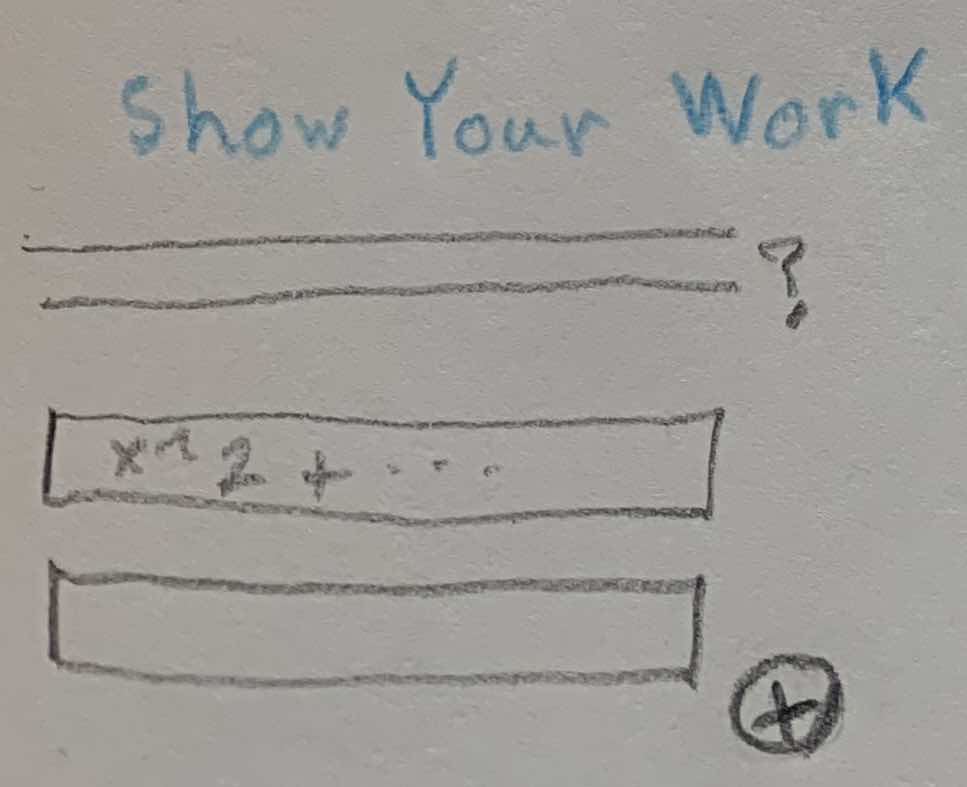 Show Your Work
?
x^2 + ...
+